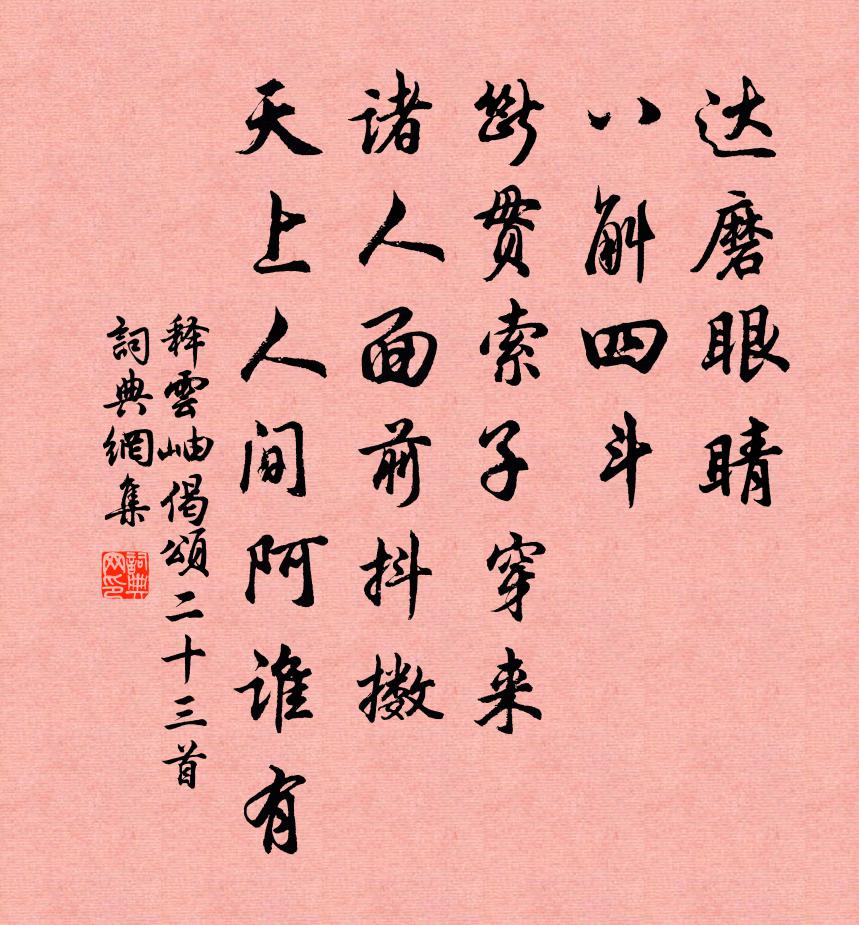 达磨眼睛
八斛四斗
断贯索子穿来
诸人面前抖擞
天上人间阿谁有
释雲岫偈頌二十三首
詞典網集
詞典网印